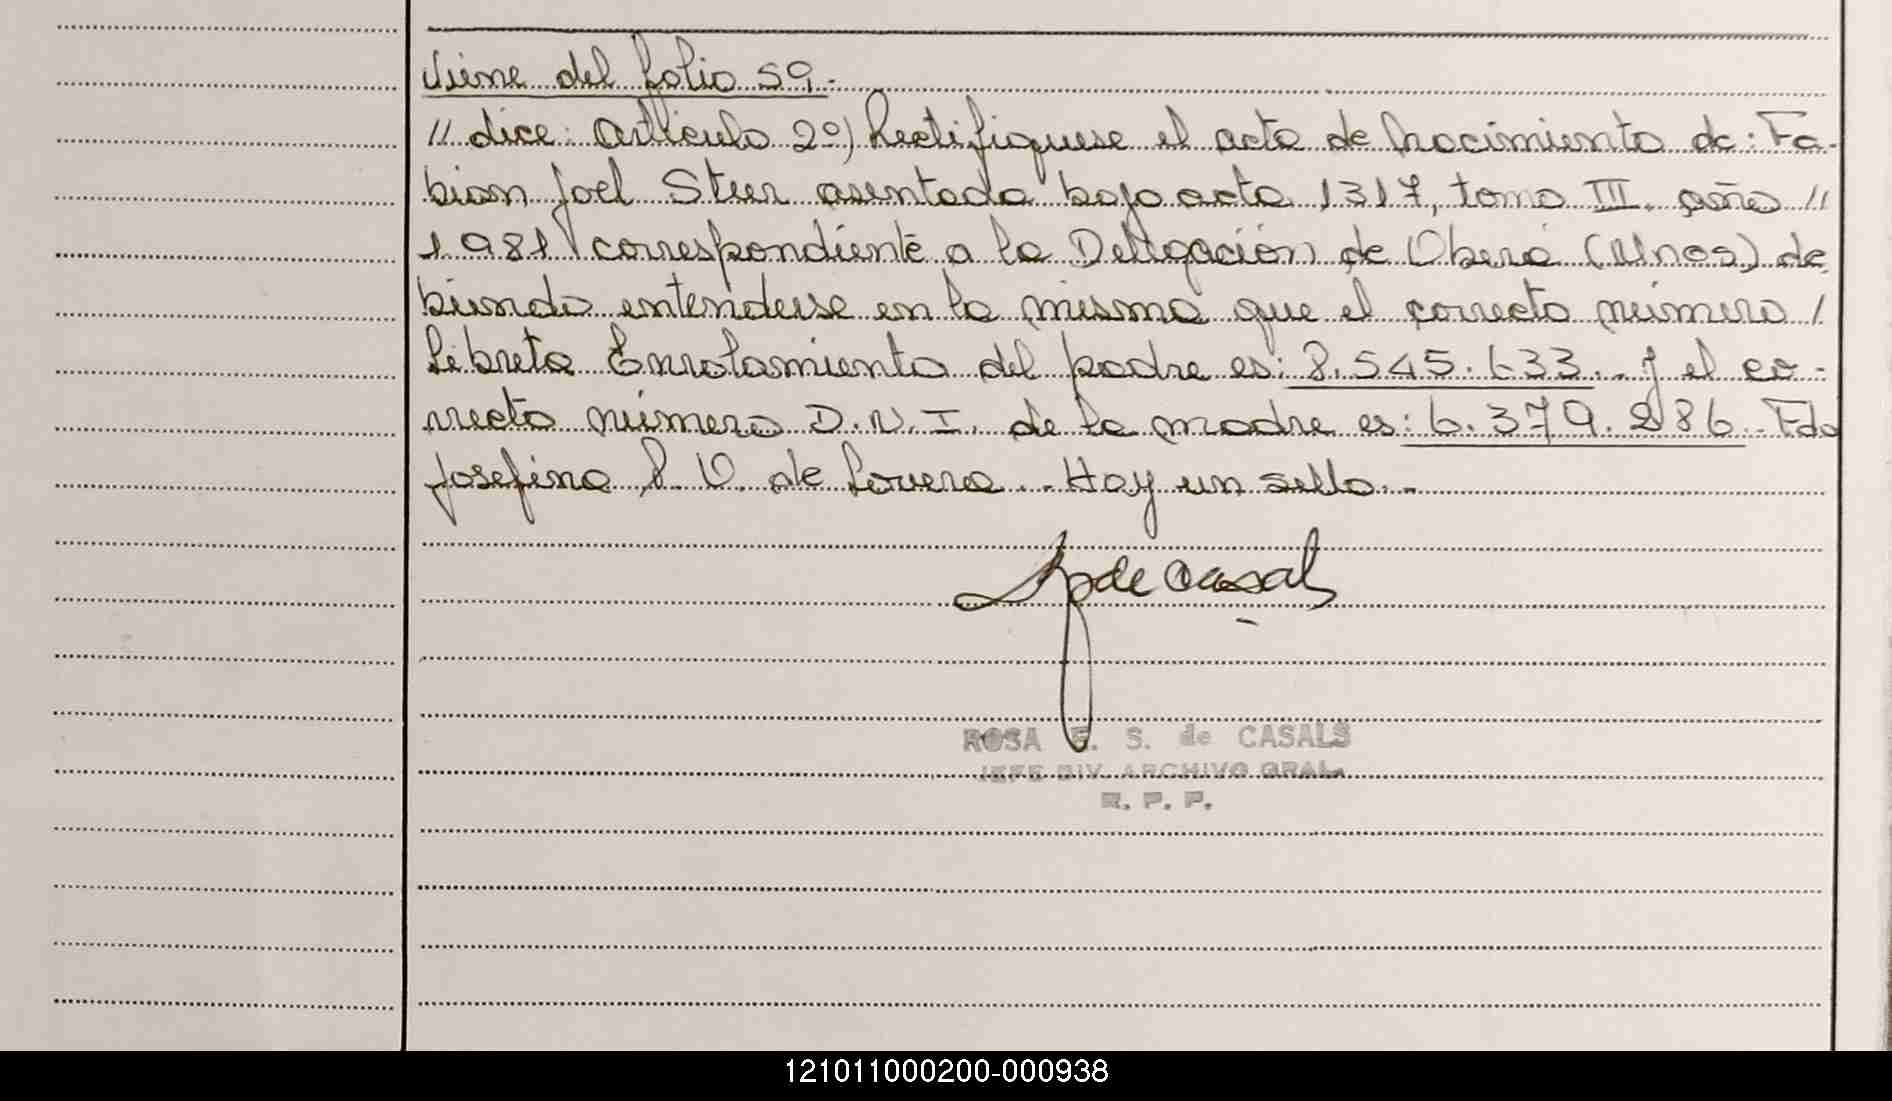 Viene del folio 59.-
// dice: artículo 2º) Rectifíquese el acta de Nacimiento de: Fa-
bian Joel Steer asentada bajo acta 1317, tomo III. año //
1.981 correspondiente a la Delegación de Oberá (Mnes) de
biendo entenderse en la misma que el correcto número /
Libreta Enrolamiento del padre es: 8.545.633.- y el co-
rrecto número D.N.I. de la madre es: 6.379.286.- Fdo
Josefina P. V. de Lovera.- Hay un sello.-
de Casals
ROSA E. S. de CASALS
JEFE DIV. ARCHIVO GRAL.
R. P. P.
121011000200-000938